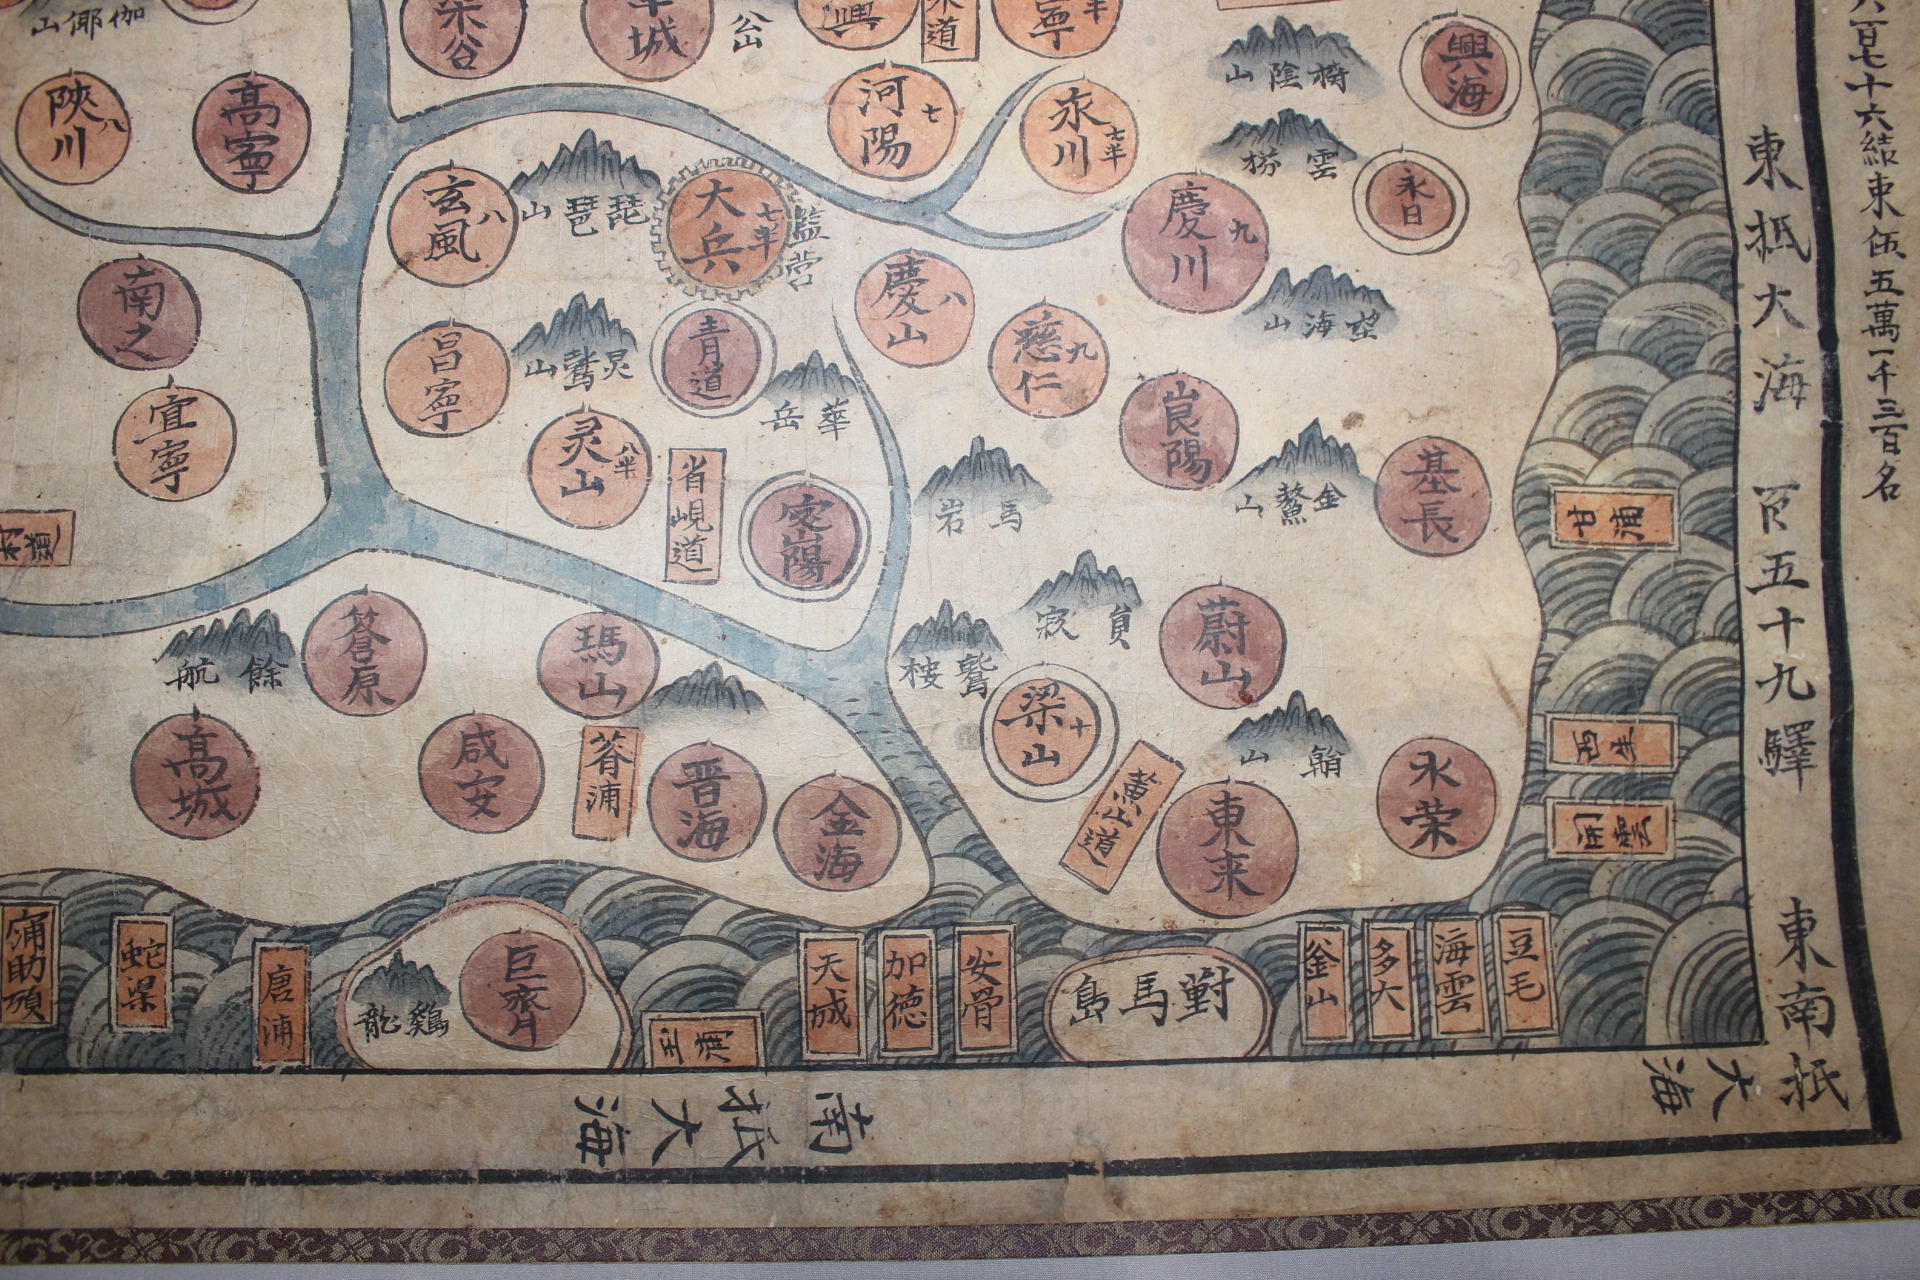 百七十六結束伍五萬一千三百名
東抵大海
五十九驛
東南抵
大海
南抵大海
伽倻山
谷
城
公山
興
道
寧
半
興海
陜川
八
高寧
河陽
七
永川
七半
樹陰山
雲
永日
玄風
八
琵琶山
大兵
七半
監营
慶川
九
慶山
八
望海山
南之
宜寧
昌寧
灵鷲山
青道
華岳
慈仁
九
陽
金鰲山
基長
灵山
八半
省峴道
陽
馬岩
甘浦
道
餘航
原
瑪山
鷲棲
寂
蔚山
梁山
十
山
西生
高城
咸安
浦
晋海
金海
山道
東来
永荣
開雲
助項
蛇梁
唐浦
鷄龍
巨齊
玉浦
天城
加德
安骨
對馬島
釜山
多大
海雲
豆毛